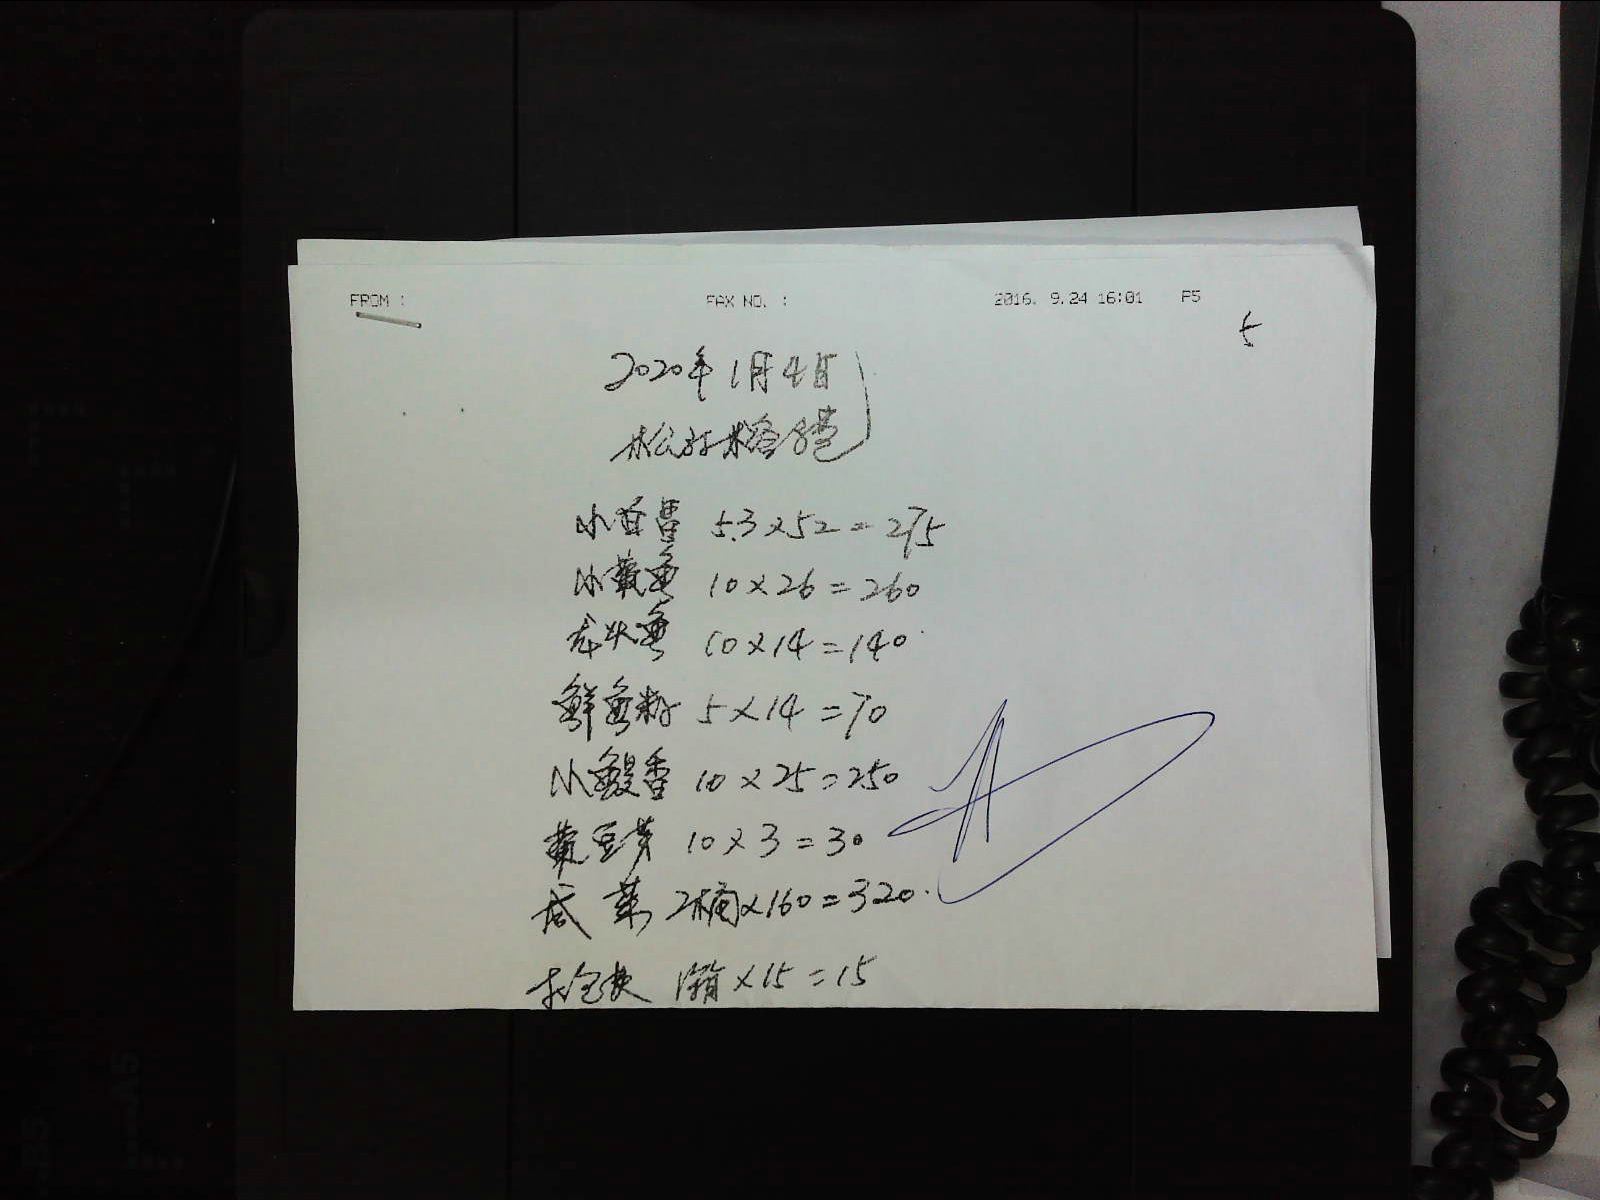 FROM :
FAX NO. :
2016. 9.24 16:01
P5
5
2020年1月4日
小黄鱼 10×26=260
5.3×52=275
龙头鱼 10×14=140
鲜鱼籽 5×14=70
小鳀香 10×25=250
黄豆芽 10×3=30
咸菜 2桶×160=320
打包费 1箱×15=15